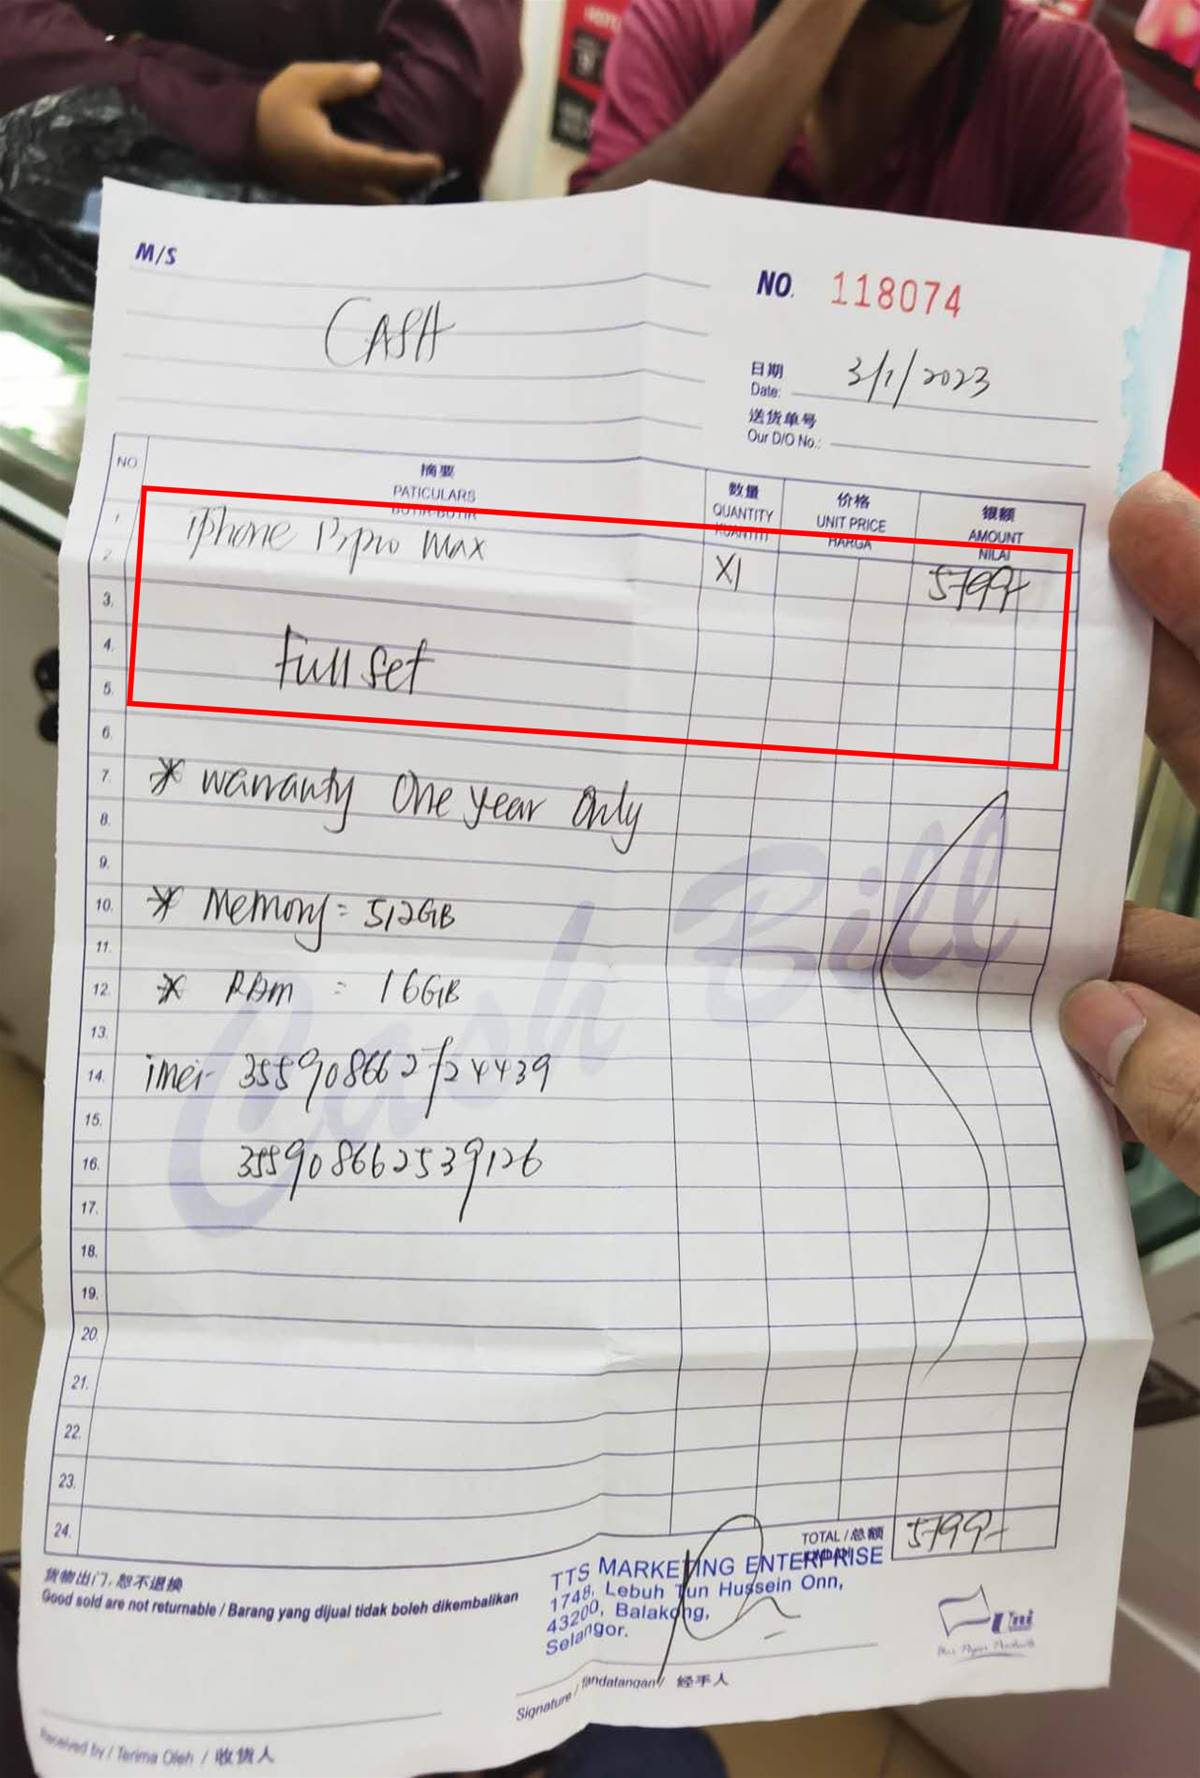 M/S
CASH
NO. 118074
日期
Date: 3/1/2023
送货单号
Our D/O No.:
NO. 摘要 数量 价格 银额
PATICULARS QUANTITY UNIT PRICE AMOUNT
BUTIR-BUTIR KUANTITI HARGA NILAI
1
2. iPhone 13 pro Max X1 5799-
3.
4. Full set
5.
6.
7. * warranty One year Only
8.
9.
10. * Memory = 512GB
11.
12. * RAM = 16GB
13.
14. imei- 355908662724439
15.
16. 355908662539126
17.
18.
19.
20.
21.
22.
23.
24.
Cash Bill
TOTAL / 总额 5799-
货物出门,恕不退换
Good sold are not returnable / Barang yang dijual tidak boleh dikembalikan
TTS MARKETING ENTERPRISE
1748, Lebuh Tun Hussein Onn,
43200, Balakong,
Selangor.
Uni
Signature / Tandatangan / 经手人
Received by / Terima Oleh / 收货人